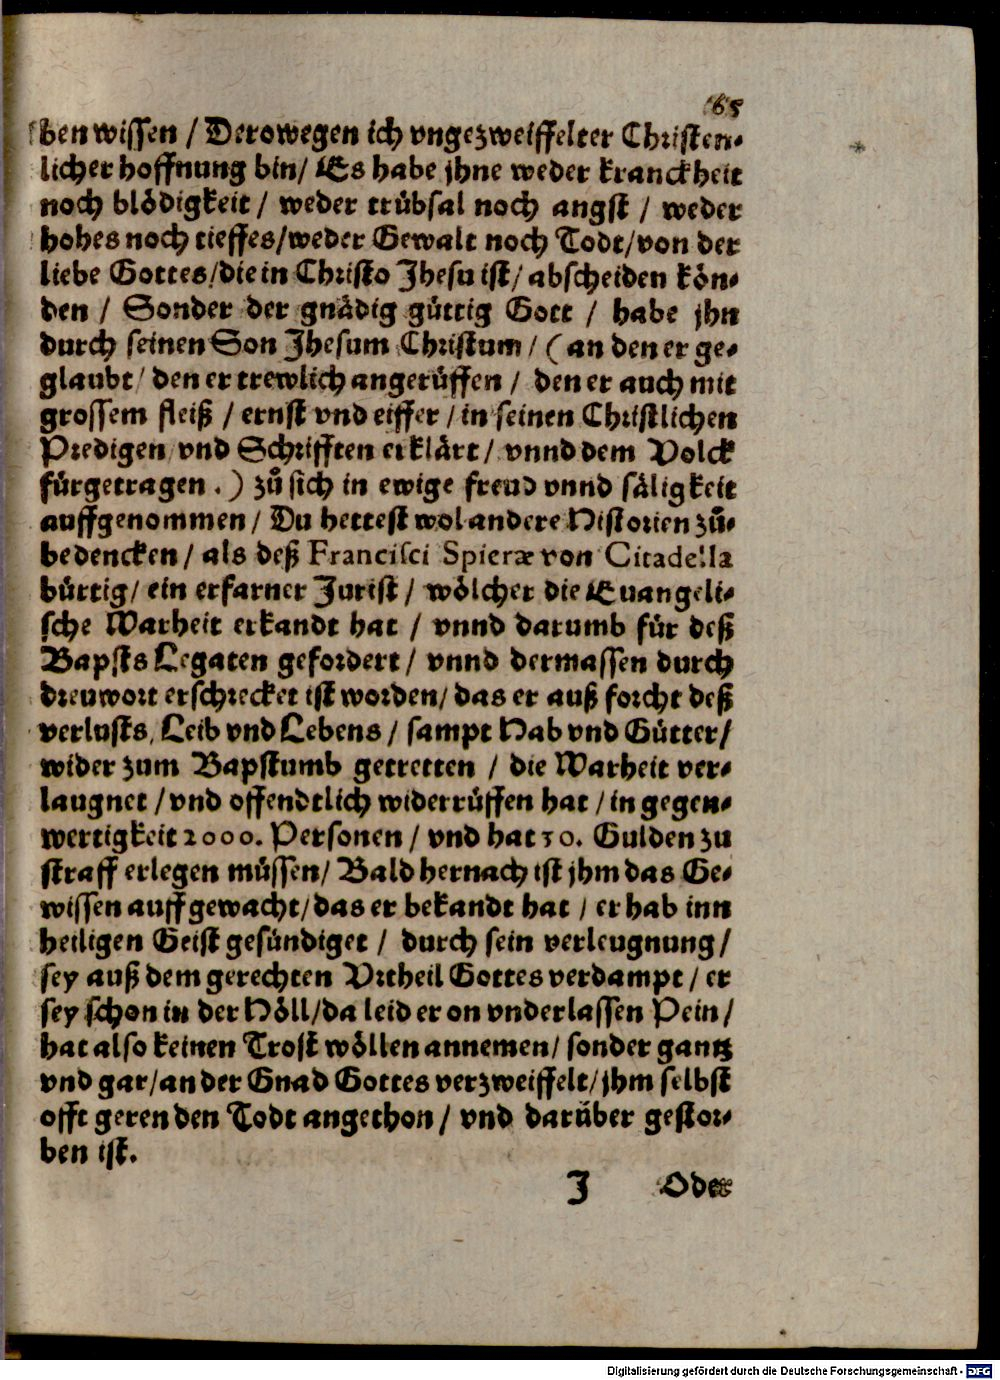 65
ben wissen / Derowegen ich vngezweiffelter Christen-
licher hoffnung bin / Es habe jhne weder kranckheit
noch blödigkeit / weder trübsal noch angst / weder
hohes noch tieffes / weder Gewalt noch Todt / von der
liebe Gottes / die in Christo Jhesu ist / abscheiden kön-
den / Sonder der gnädig güttig Gott / habe jhn
durch seinen Son Jhesum Christum / ( an den er ge-
glaubt / den er trewlich angerüffen / den er auch mit
grossem fleiß / ernst vnd eiffer / in seinen Christlichen
Predigen vnd Schrifften erklärt / vnnd dem Volck
fürgetragen . ) zů sich in ewige freud vnnd säligkeit
auffgenommen / Du hettest wol andere Historien zů-
bedencken / als deß Francisci Spieræ von Citadella
bürtig / ein erfarner Jurist / wölcher die Euangeli-
sche Warheit erkandt hat / vnnd darumb für deß
Bapsts Legaten gefordert / vnnd dermassen durch
dreuwort erschrecket ist worden / das er auß forcht deß
verlusts / Leib vnd Lebens / sampt Hab vnd Gütter /
wider zum Bapstumb getretten / die Warheit ver-
laugnet / vnd offendtlich widerrüffen hat / in gegen-
wertigkeit 2000. Personen / vnd hat 30. Gulden zu
straff erlegen müssen / Bald hernach ist jhm das Ge-
wissen auffgewacht / das er bekandt hat / er hab inn
heiligen Geist gesündiget / durch sein verleugnung /
sey auß dem gerechten Vrtheil Gottes verdampt / er
sey schon in der Höll / da leid er on vnderlassen Pein /
hat also keinen Trost wöllen annemen / sonder gantz
vnd gar / an der Gnad Gottes verzweiffelt / jhm selbst
offt geren den Todt angethon / vnd darüber gestor-
ben ist.
J Oder
Digitalisierung gefördert durch die Deutsche Forschungsgemeinschaft - DFG